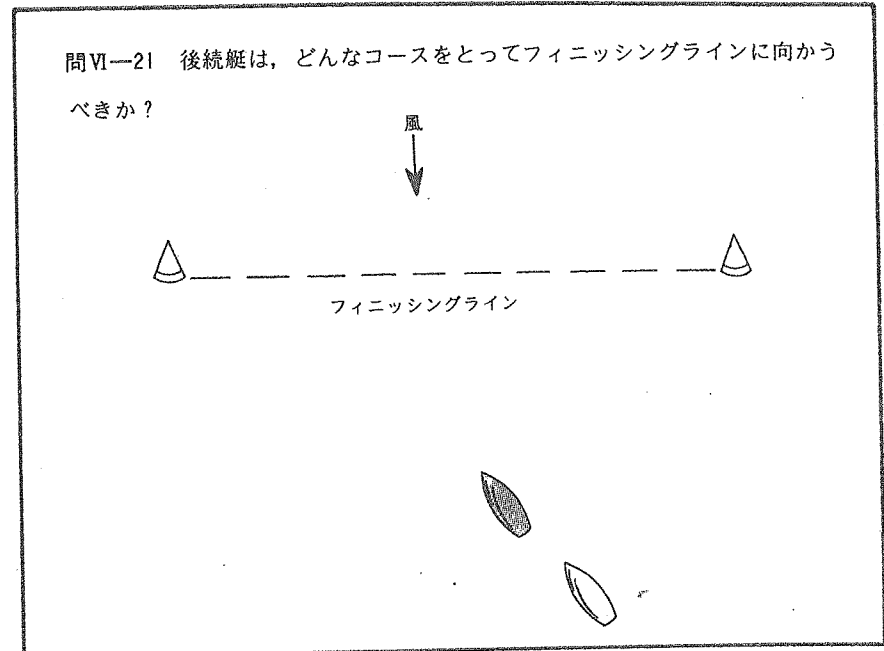 問Ⅵ―21 後続艇は，どんなコースをとってフィニッシングラインに向かう
べきか？
風
フィニッシングライン